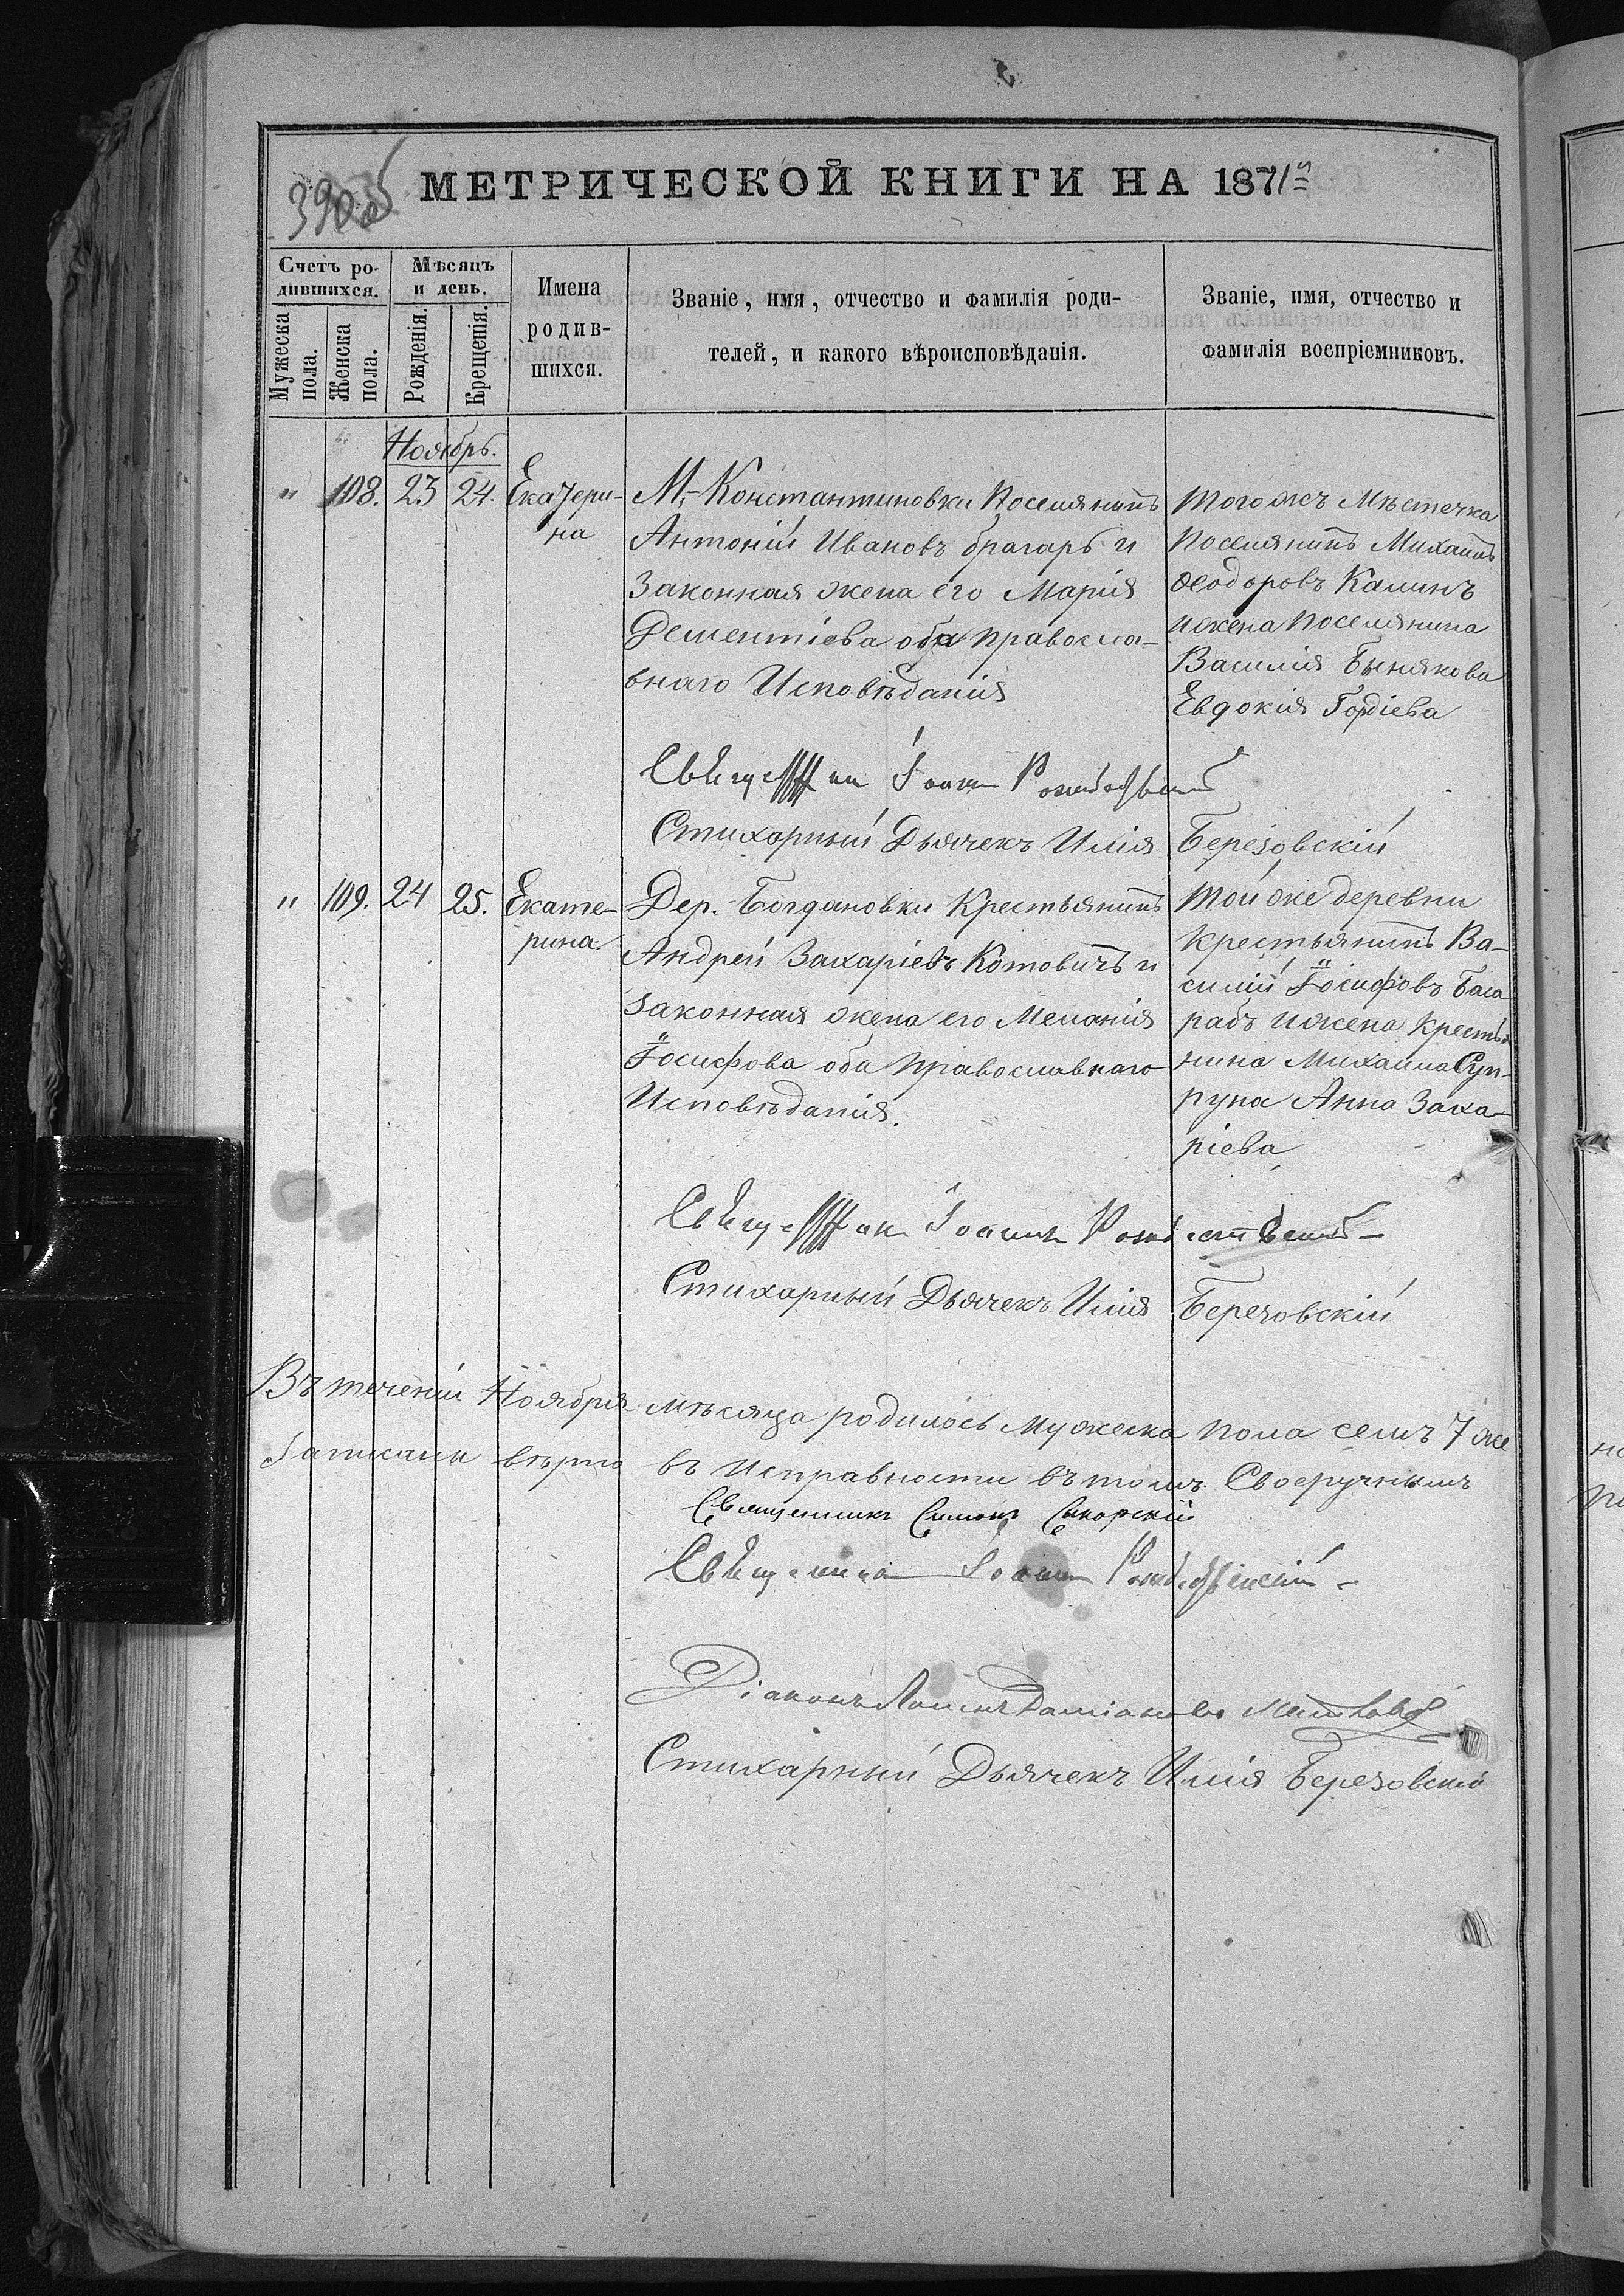 390об
МЕТРИЧЕСКОЙ КНИГИ НА 1871й
Счетъ ро-
дившихся.
Мужеска
пола.
Женска
пола.
Мѣсяцъ
и день.
Рожденія.
Крещенія.
Имена
родив-
шихся.
Званіе, имя, отчество и фамилія роди-
телей, и какого вѣроисповѣданія.
Званіе, имя, отчество и
фамилія воспріемниковъ.
Ноябрь.
" 108. 23 24.
Екатери-
на
М,- Константиновки Поселянинъ
Антоній Ивановъ брагарь и
Законная жена его Марія
Дементіева оба Правосла-
внаго Исповѣданія
того жъ Мѣстечка
Поселянинъ Михаилъ
Ѳеодоровъ Калинъ
и жена Поселянина
Василія Бынякова
Евдокія Гордіева
Священникъ Іоаннъ Рождественскій
Стихарный Дьячекъ Илія Березовскій
" 109. 24 25.
Екате-
рина
Дер. Богдановки Крестьянинъ
Андрей Захаріевъ Котовичъ и
законная жена его Меланія
Іосифова оба Православнаго
Исповѣданія.
той же деревни
Крестьянинъ Ва-
силій Іосифовъ Баса
рабъ и жена Крестья
нина Михаила Суп-
руна Анна Заха-
ріева
Священникъ Іоаннъ Рождественскій
Стихарный Дьячекъ Илія Березовскій
Въ теченіи Ноября мѣсяца родилось Мужеска пола семь 7 же
Записаны вѣрно въ Исправности въ томъ Своеручнымъ
Священникъ Симонъ Сикорскій
Священникъ Іоаннъ Рождественскій
Діаконъ
Стихарный Дьячекъ Илія Березовскій